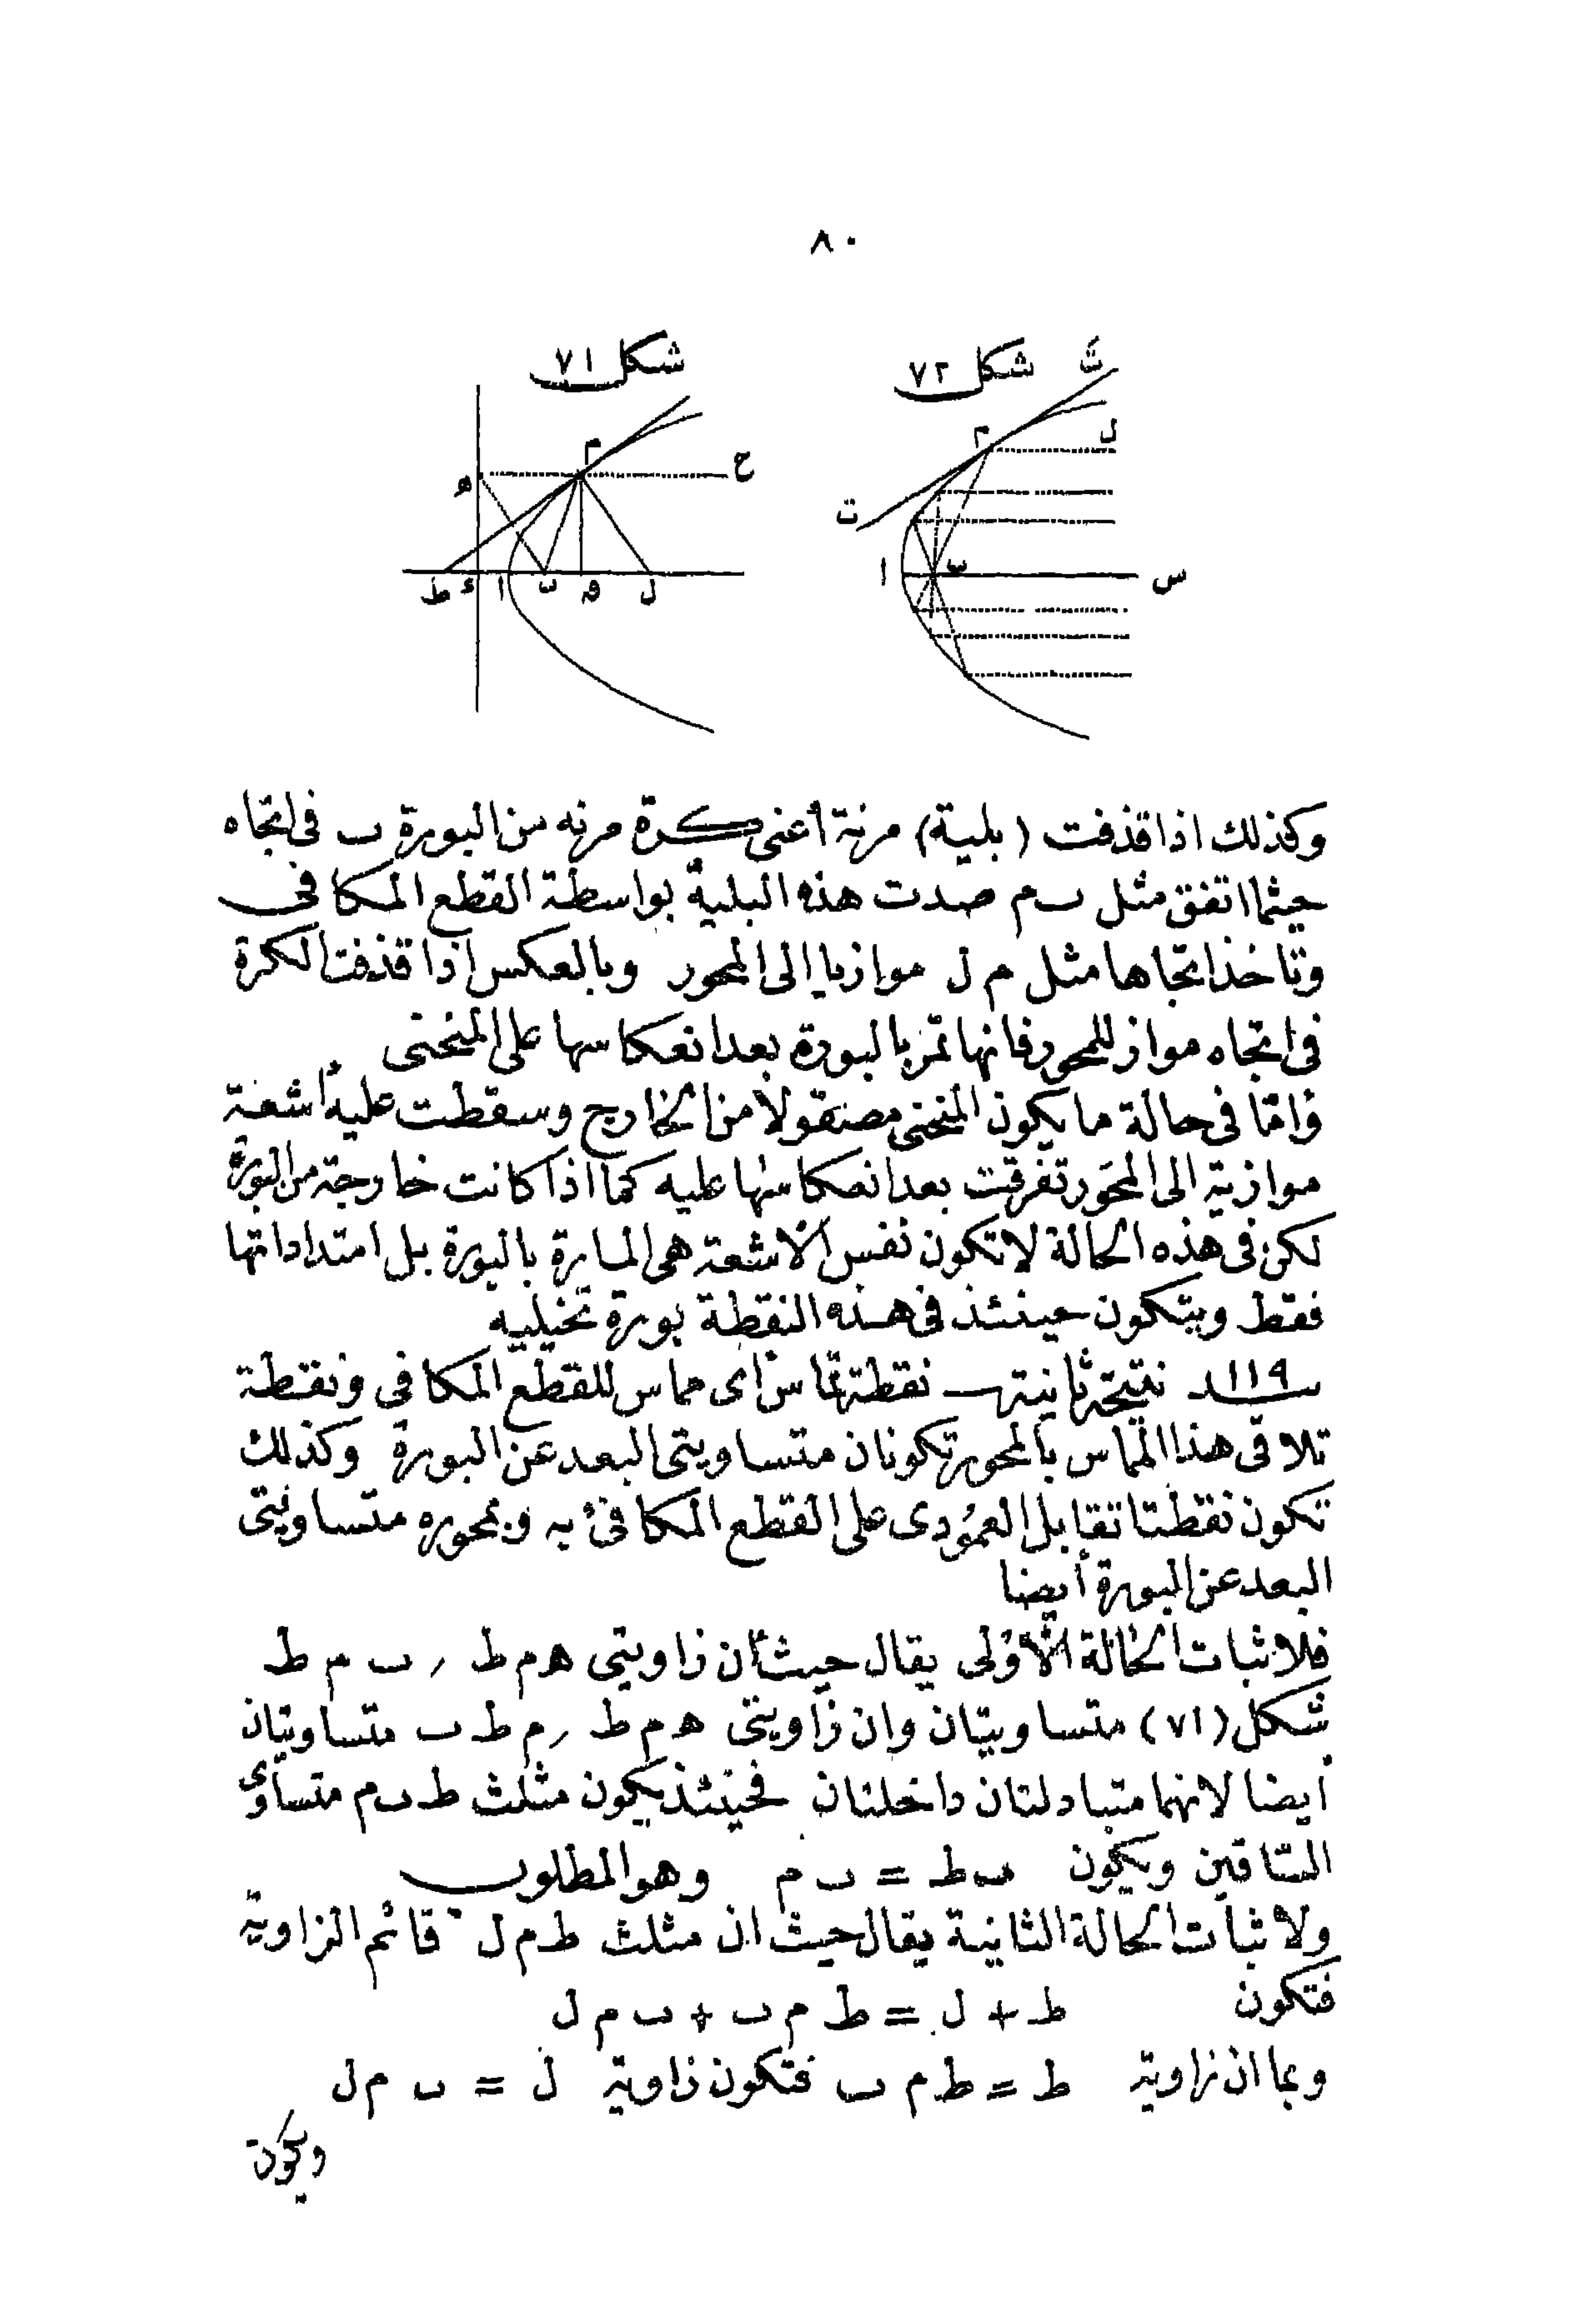 ٨٠
شكل ٧٢
شكل ٧١
ث
م
ل
ت
ا
ب
س
م
ح
ه
ط ء ا ب ق ل
وكذلك اذا قذفت (بلية) مرنة أعنى كرة مرنه من البورة ب فى اتجاه
حيثما اتفق مثل ب م صدت هذه البلية بواسطة القطع المكافى
وتاخذ اتجاها مثل م ل موازيا الى المحور وبالعكس اذا قذفت الكرة
فى اتجاه مواز للمحور فانها تمر بالبورة بعد انعكاسها على المنحنى
وامّا فى حالة ما يكون المنحنى مصقولا من الخارج وسقطت عليه اشعة
موازية الى المحور تفرقت بعد انعكاسها عليه كما اذا كانت خارجة من البورة
لكن فى هذه الحالة لا تكون نفس الاشعة هى المارة بالبورة بل امتداداتها
فقط ويتكون حينئذ فى هذه النقطة بورة تخيلييه
١١٩ نتيجة ثانية نقطة تماس أى مماس للقطع المكافى ونقطة
تلاقى هذا المماس بالمحور تكونان متساويتى البعد عن البورة وكذلك
تكون نقطتا تقابل العمودى على القطع المكافئ به وبمحوره متساويتى
البعد عن البورة أيضا
فلاثبات الحالة الأولى يقال حيث أن زاويتى ه م ط , ب م ط
شكل (٧١) متساويتان وان زاويتى ه م ط , م ط ب متساويتان
أيضا لانهما متبادلتان داخلتان فحينئذ يكون مثلث ط ب م متساوى
الساقين ويكون ب ط = ب م وهو المطلوب
ولاثبات الحالة الثانية يقال حيث ان مثلث ط م ل قائم الزاوية
فتكون ط + ل = ط م ب + ب م ل
وبما ان زاوية ط = ط م ب فتكون زاوية ل = ب م ل
ويكون